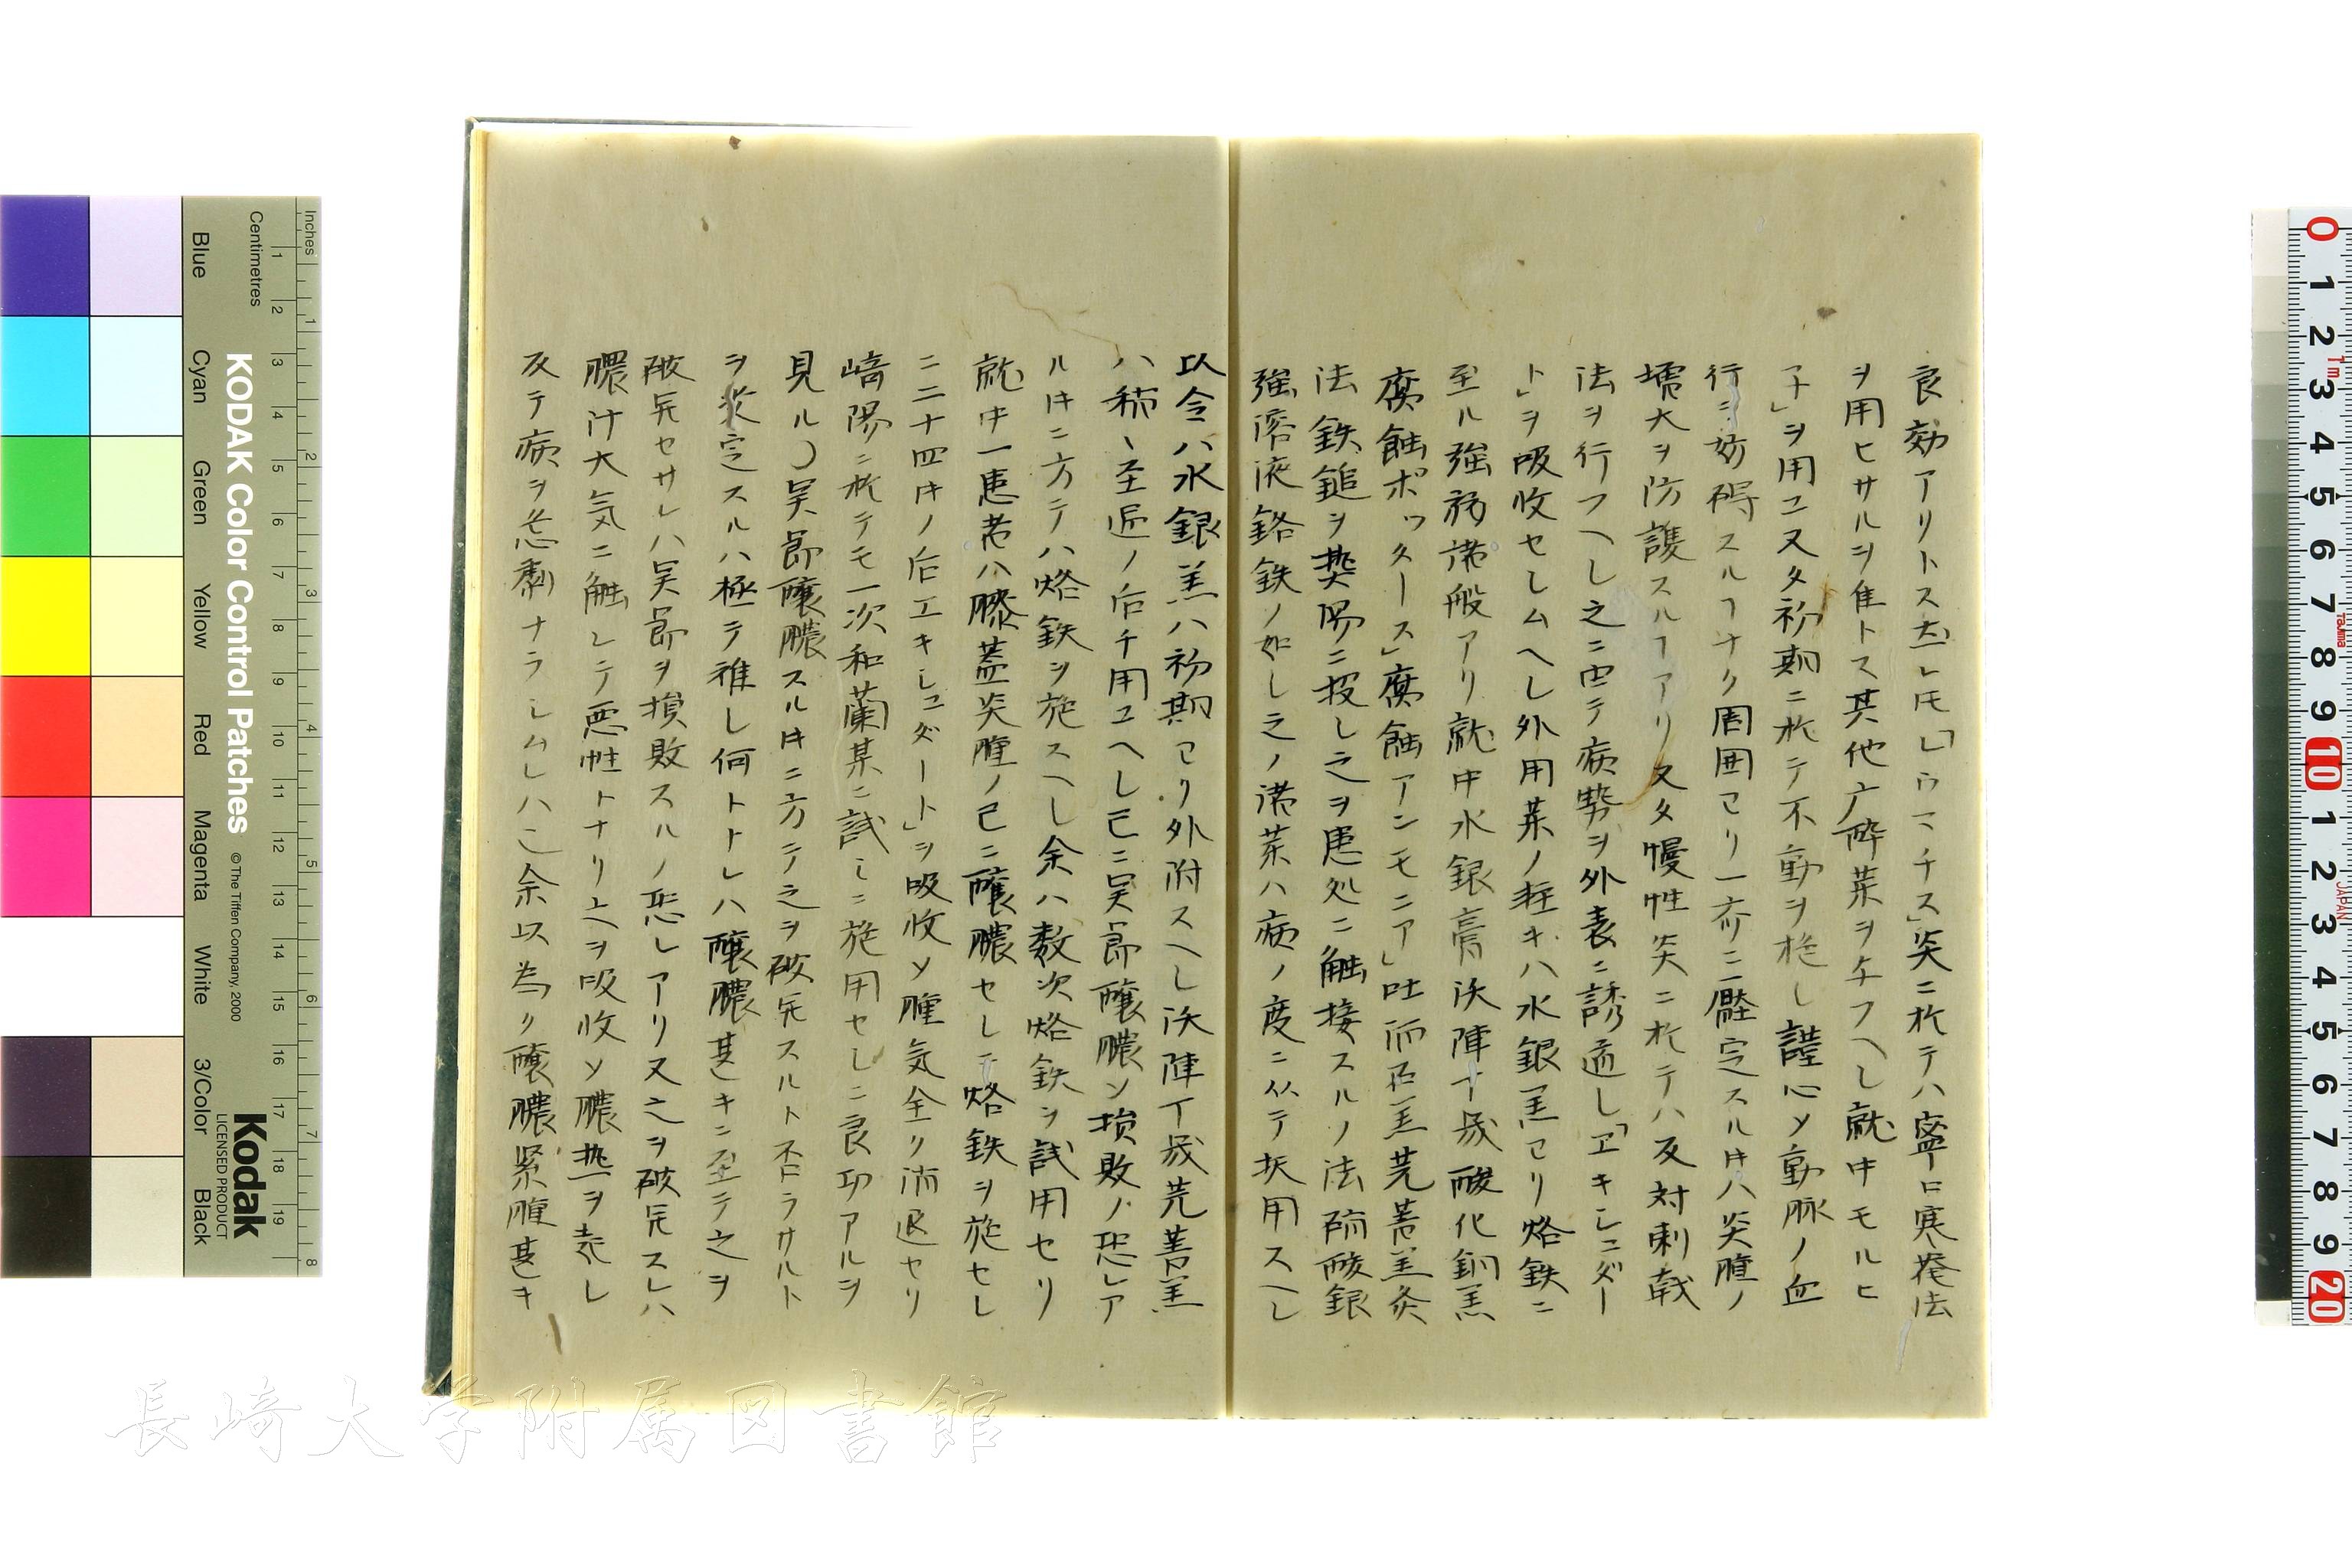 良効アリトス然レ𪜈「レウマチス」炎ニ於テハ寧ロ寒罨法
ヲ用ヒサルヲ佳トス其他广酔薬ヲ与フヘし就中モルヒ
子」ヲ用ユ又タ初期ニ於テ不動ヲ施し謹心ソ動脈ノ血
行ニ妨碍スルヿナク周囲ヨリ一斉ニ壓定スル𪜈ハ炎腫ノ
壊大ヲ防護スルヿアリ又タ慢性炎ニ於テハ反対刺戟
法ヲ行フヘし之ニ由テ病勢ヲ外表ニ誘適し「ヱキしユダー
ト」ヲ吸收せしムヘし外用薬ノ軽キハ水銀羔ヨリ烙鉄ニ
至ル強弱諸般アリ就中水銀膏沃陳丁幾酸化銅羔
腐蝕ポッタース」腐蝕アンモニア」吐酒石羔芫菁羔灸
法鉄鎚ヲ熱湯ニ投し之ヲ患処ニ触接スルノ法硝酸銀
強溶液烙鉄ノ如し之ノ諸薬ハ病ノ度ニ从テ択用スヘし
以令ハ水銀羔ハ初期ヨリ外附スヘし沃陳丁幾芫菁羔
ハ稀、至近ノ后チ用ユヘし已ニ関節醸膿ソ損敗ノ恐レア
ル𪜈ニ方テハ烙鉄ヲ施スヘし余ハ数次烙鉄ヲ試用セリ
就中一患者ハ膝蓋炎腫ノ已ニ醸膿セし𪜈烙鉄ヲ施セし
ニ二十四𪜈ノ后エキしユダート」ヲ吸收ソ腫気全ク消退セリ
崎陽ニ於テモ一次和蘭某ニ試しニ施用セしニ良功アルヲ
見ル〇関節醸膿スル𪜈ニ方テ之ヲ破兂スルト否ラサルト
ヲ決定スルハ極テ難し何トナレハ醸膿甚キニ至テ之ヲ
破兂セサレハ関節ヲ損敗スルノ恐レアリ又之ヲ破兂スレハ
膿汁大気ニ触レテ悪性トナリ之ヲ吸收ソ膿熱ヲ発し
反テ病ヲ急劇ナラしムレハ也余以為ク醸膿緊腫甚キ